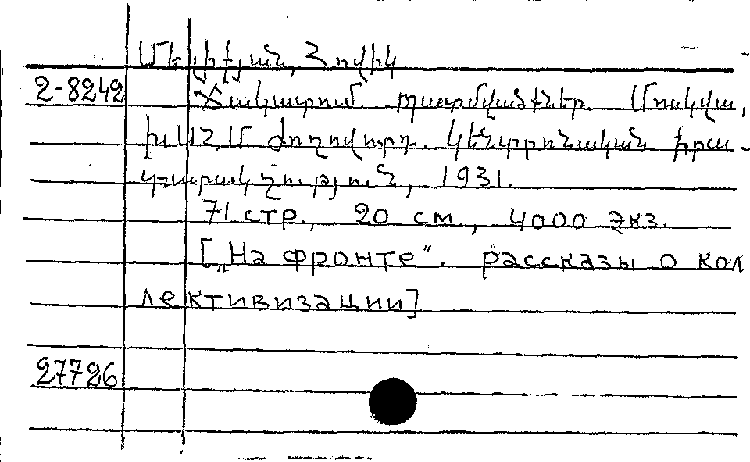 Մելիքյան, Հովիկ
2-8242 Ճակատում պատմվածքներ. Մոսկվա,
ԽՍՀՄ ժողովուրդ. Կենտրոնական հրա-
տարակչություն, 1931.
71 стр., 20 см., 4000 экз.
[„На фронте“. рассказы о кол
лективизации]
27726